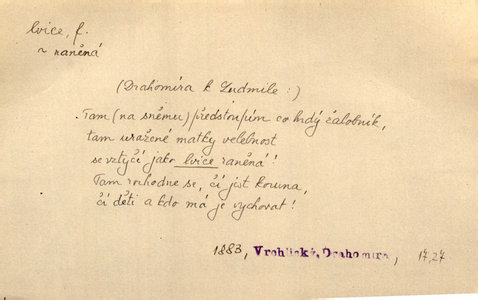 lvice, f.
~ raněná
(Drahomíra k Ludmile :)
Tam (na sněmu) předstoupím co hrdý žalobník,
tam uražené matky velebnost
se vztyčí jako lvice raněná!
Tam rozhodne se, čí jest koruna,
čí děti a kdo má je vychovat!
1883, Vrchlický, Drahomíra, 17,27